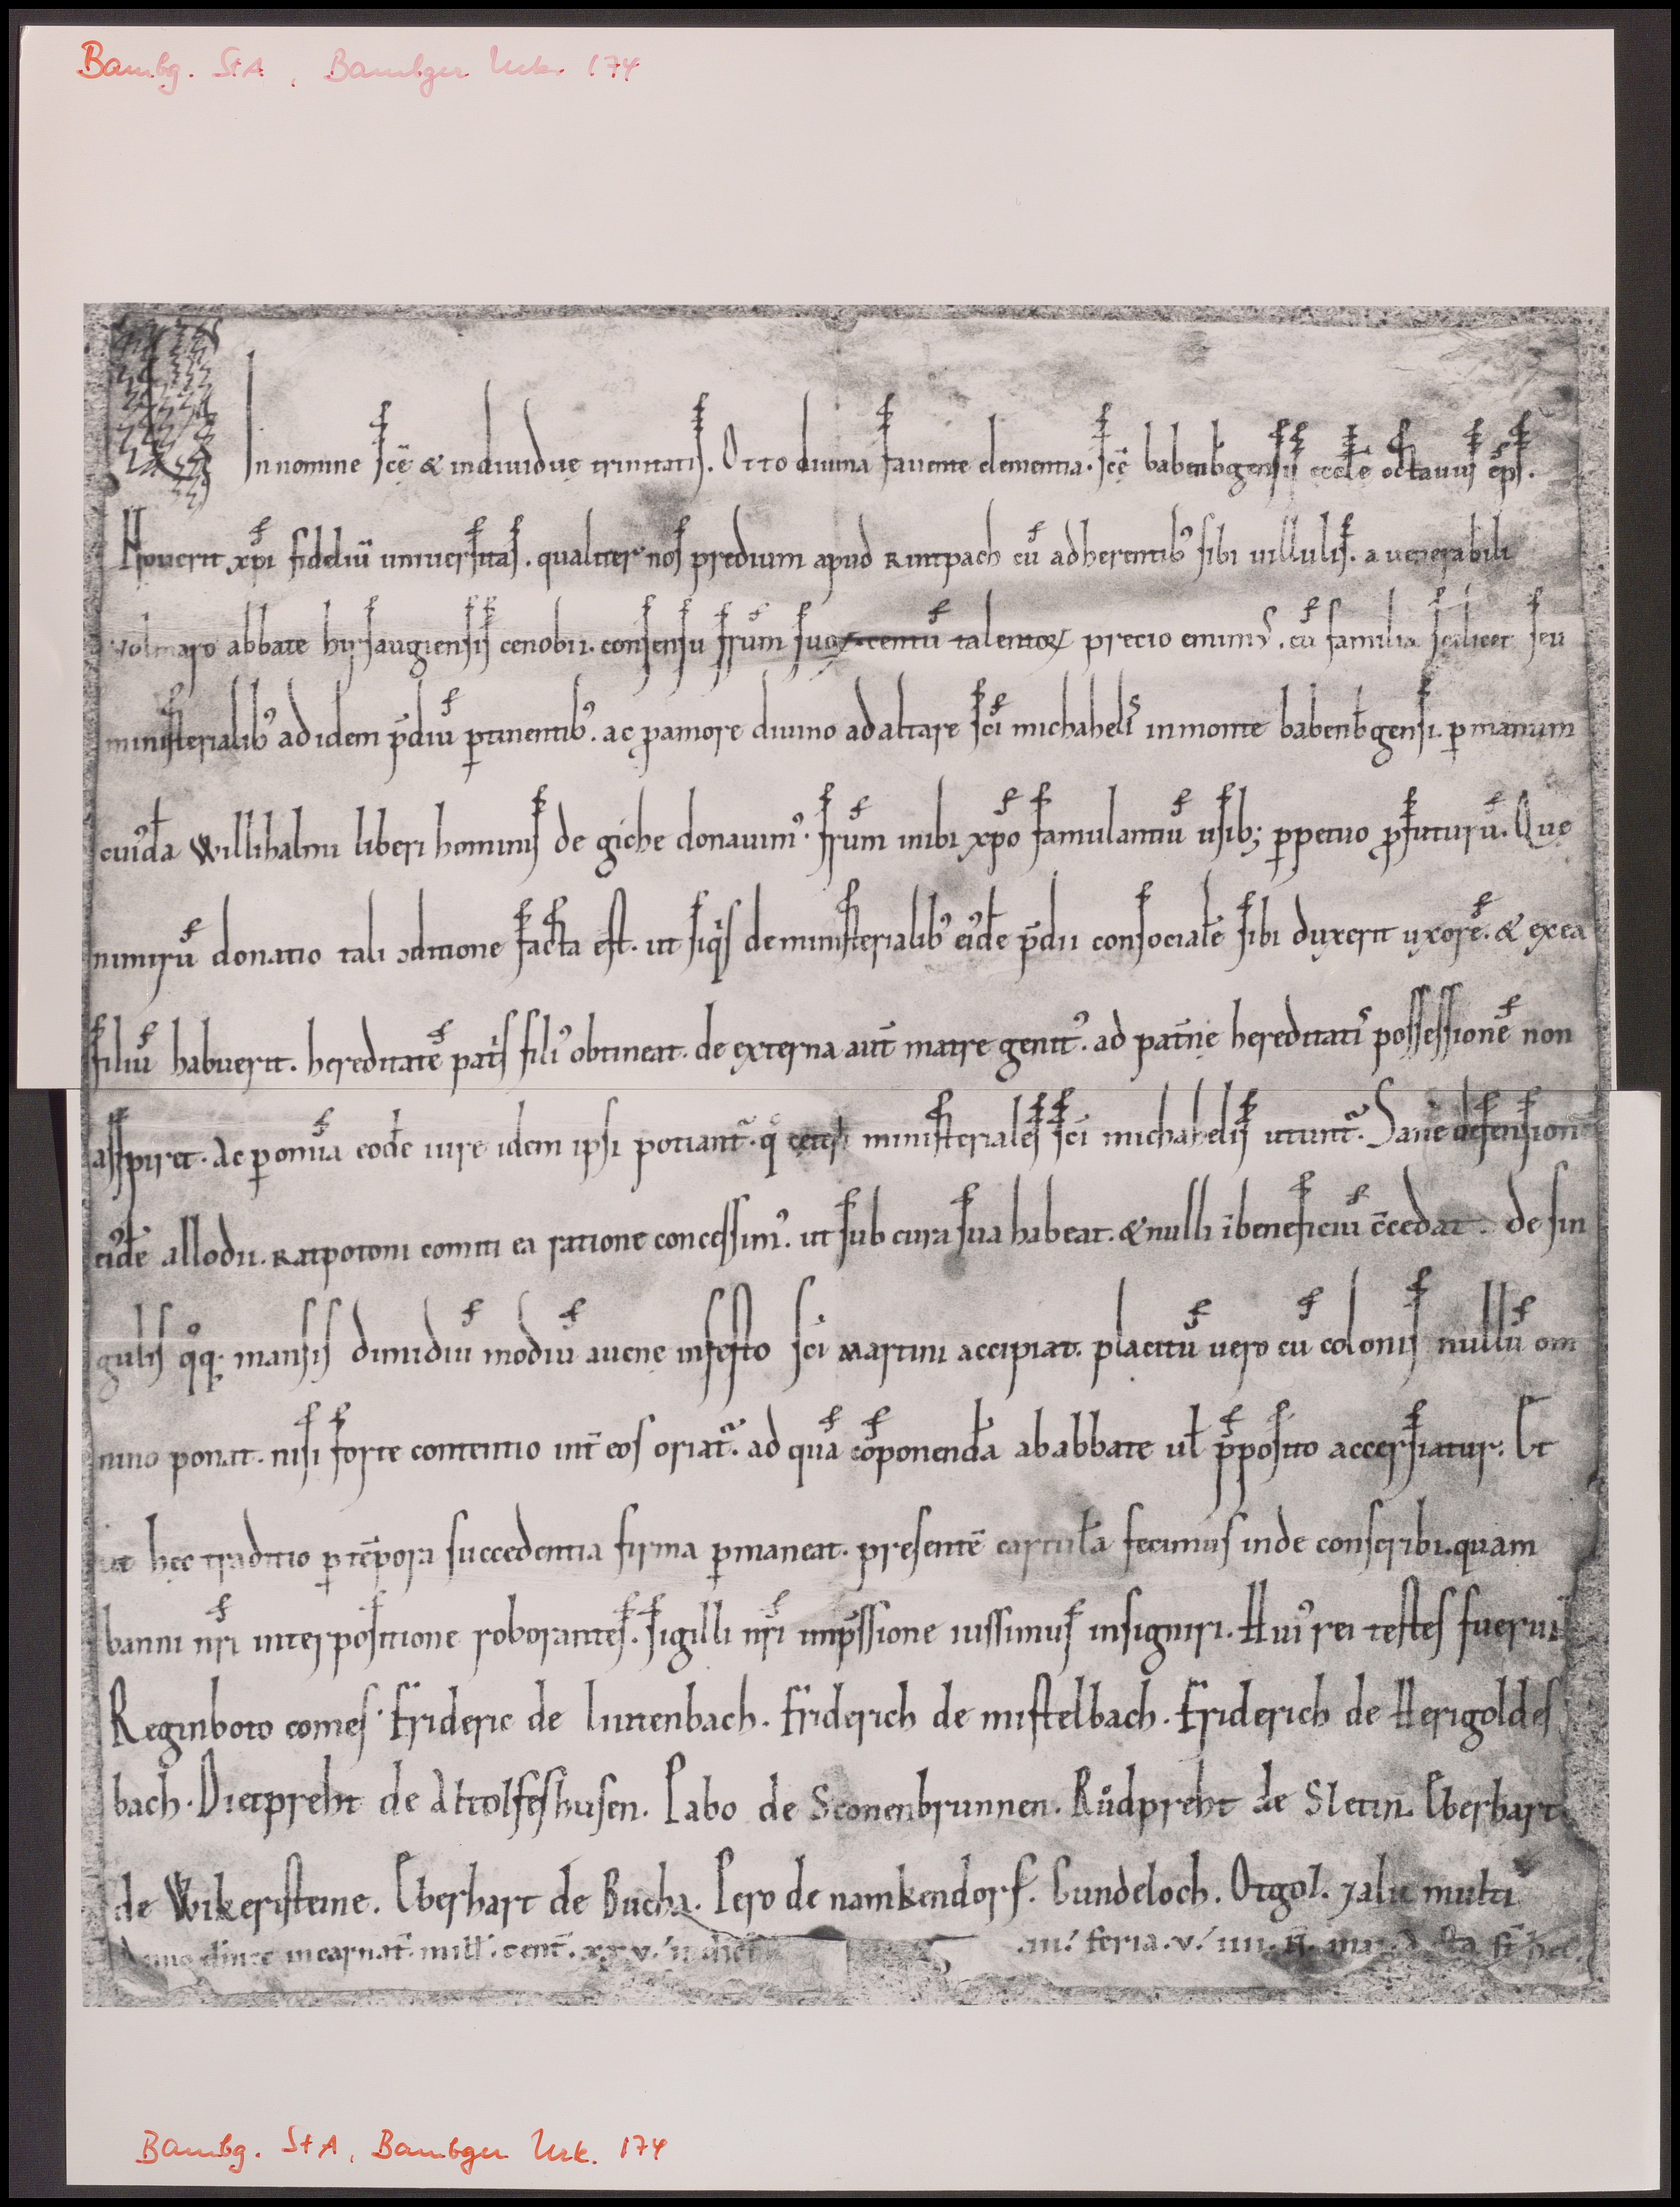 Bambg. StA, Bambger Urk. 174
In nomine sc̄ę & indiuiduę trinitatis. Otto diuina fauente clementia. sc̄ę babenb̄gensis eccłe octauus ep̄s.
Nouerit xp̄i fideliū uniuersitas. qualiter nos predium apud Rintpach cū adherentibꝰ sibi uillulis. a uenerabili
volmaro abbate hirsaugiensis cenobii. consensu fr̄um suoꝝ centū talentoꝝ precio emimꝰ. cū familia scilicet seu
ministerialibꝰ ad idem p̄diū ꝑtinentibꝰ. ac p amore diuino ad altare sc̄i michahelis in monte babenb̄gensi. ꝑ manum
cuiꝰdā Willihalmi liberi hominis de giche donauimꝰ. fr̄um inibi xp̄o famulantiū usibꝫ ꝑpetuo ꝓfuturū. Quę
nimirū donatio tali ↄditione facta est. ut siq̇s de ministerialibꝰ eiꝰdē p̄dii consocialē sibi duxerit uxorē. & ex ea
filiū habuerit. hereditatē pat̓s filiꝰ obtineat. de externa aut̄ matre genitꝰ. ad pat̄nę hereditatis possessionē non
aspiret. Ac ꝑ om̄ia eodē iure idem ipsi potiant᷑. q̊ ceteri ministeriales sc̄i michahelis utunt᷑. Sane defensionē
eiꝰdē allodii. Ratpotoni comiti ea ratione concessimꝰ. ut sub cura sua habeat. & nulli ī beneficiū c̄cedat. de sin
gulis q̊qꝫ mansis dimidiū modiū auenę in festo sc̄i Martini accipiat. placitū uero cū colonis nullū om
nino ponat. nisi forte contentio int̄ eos oriat᷑. ad quā cōponendā ab abbate uł p̄posito accersiatur. Et
ut hęc traditio ꝑ tēpora succedentia firma ꝑmaneat. presentē cartulā fecimus inde conscribi. quam
banni nr̄i interpositione roborantes. sigilli nr̄i imp̄ssione iussimus insigniri. Huiꝰ rei testes fuerūt
Reginboto comes. Frideric de lintenbach. Friderich de mistelbach. Friderich de Herigoldes
bach. Dietpreht de Attolfeshusen. Pabo de Sconenbrunnen. Růdpreht de Sletin. Eberhart
de Wikeristeine. Eberhart de Bucha. Pero de namkendorf. Gundeloch. Otgol. ⁊ alii multi
Anno dn̄icę incarnat̄. mill̓. cent̄. xx v.
feria. v. iiii. n̄. Acta st̄ hęc.
Bambg. StA, Bambger Urk. 174